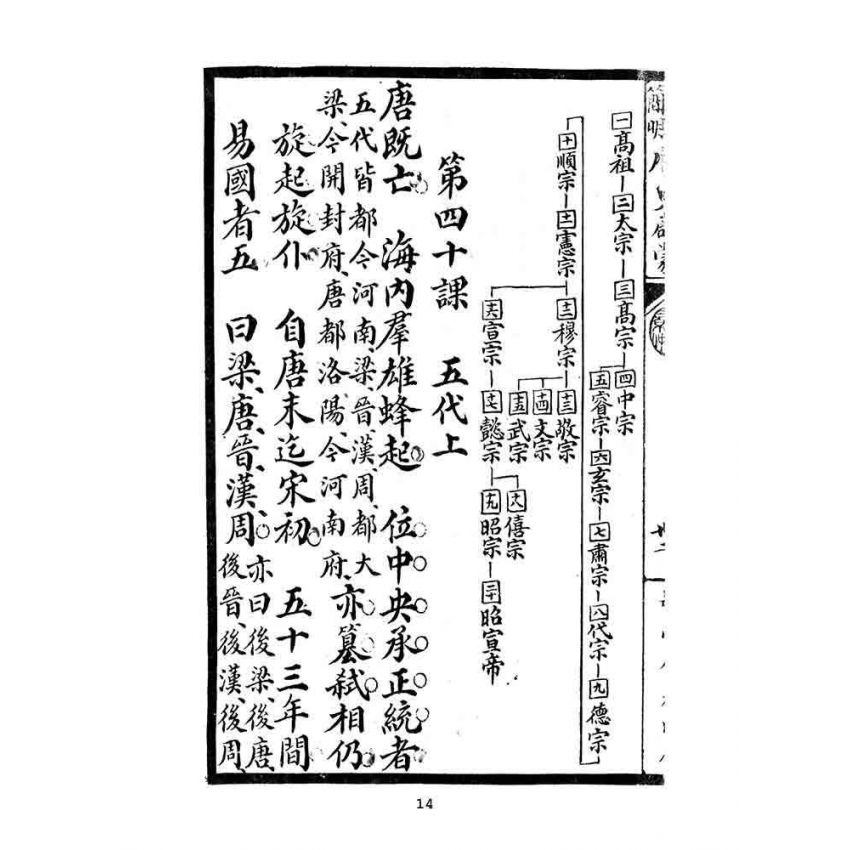 簡明
一高祖—二太宗—三高宗—四中宗
五睿宗—六玄宗—七肅宗—八代宗—九德宗
十順宗—十一憲宗—十二穆宗—十三敬宗
十四文宗
十五武宗
十六宣宗—十七懿宗—十八僖宗
十九昭宗—二十昭宣帝
第四十課 五代上
唐既亡。海內羣雄蜂起。位中央承正統者
五代皆都今河南、梁、晉、漢、周、都大
梁、今開封府、唐都洛陽、今河南府、亦篡弒相仍。
旋起旋仆。自唐末迄宋初。五十三年間
易國者五 曰梁、唐、晉、漢、周。亦曰後梁、後唐、
後晉、後漢、後周、
14